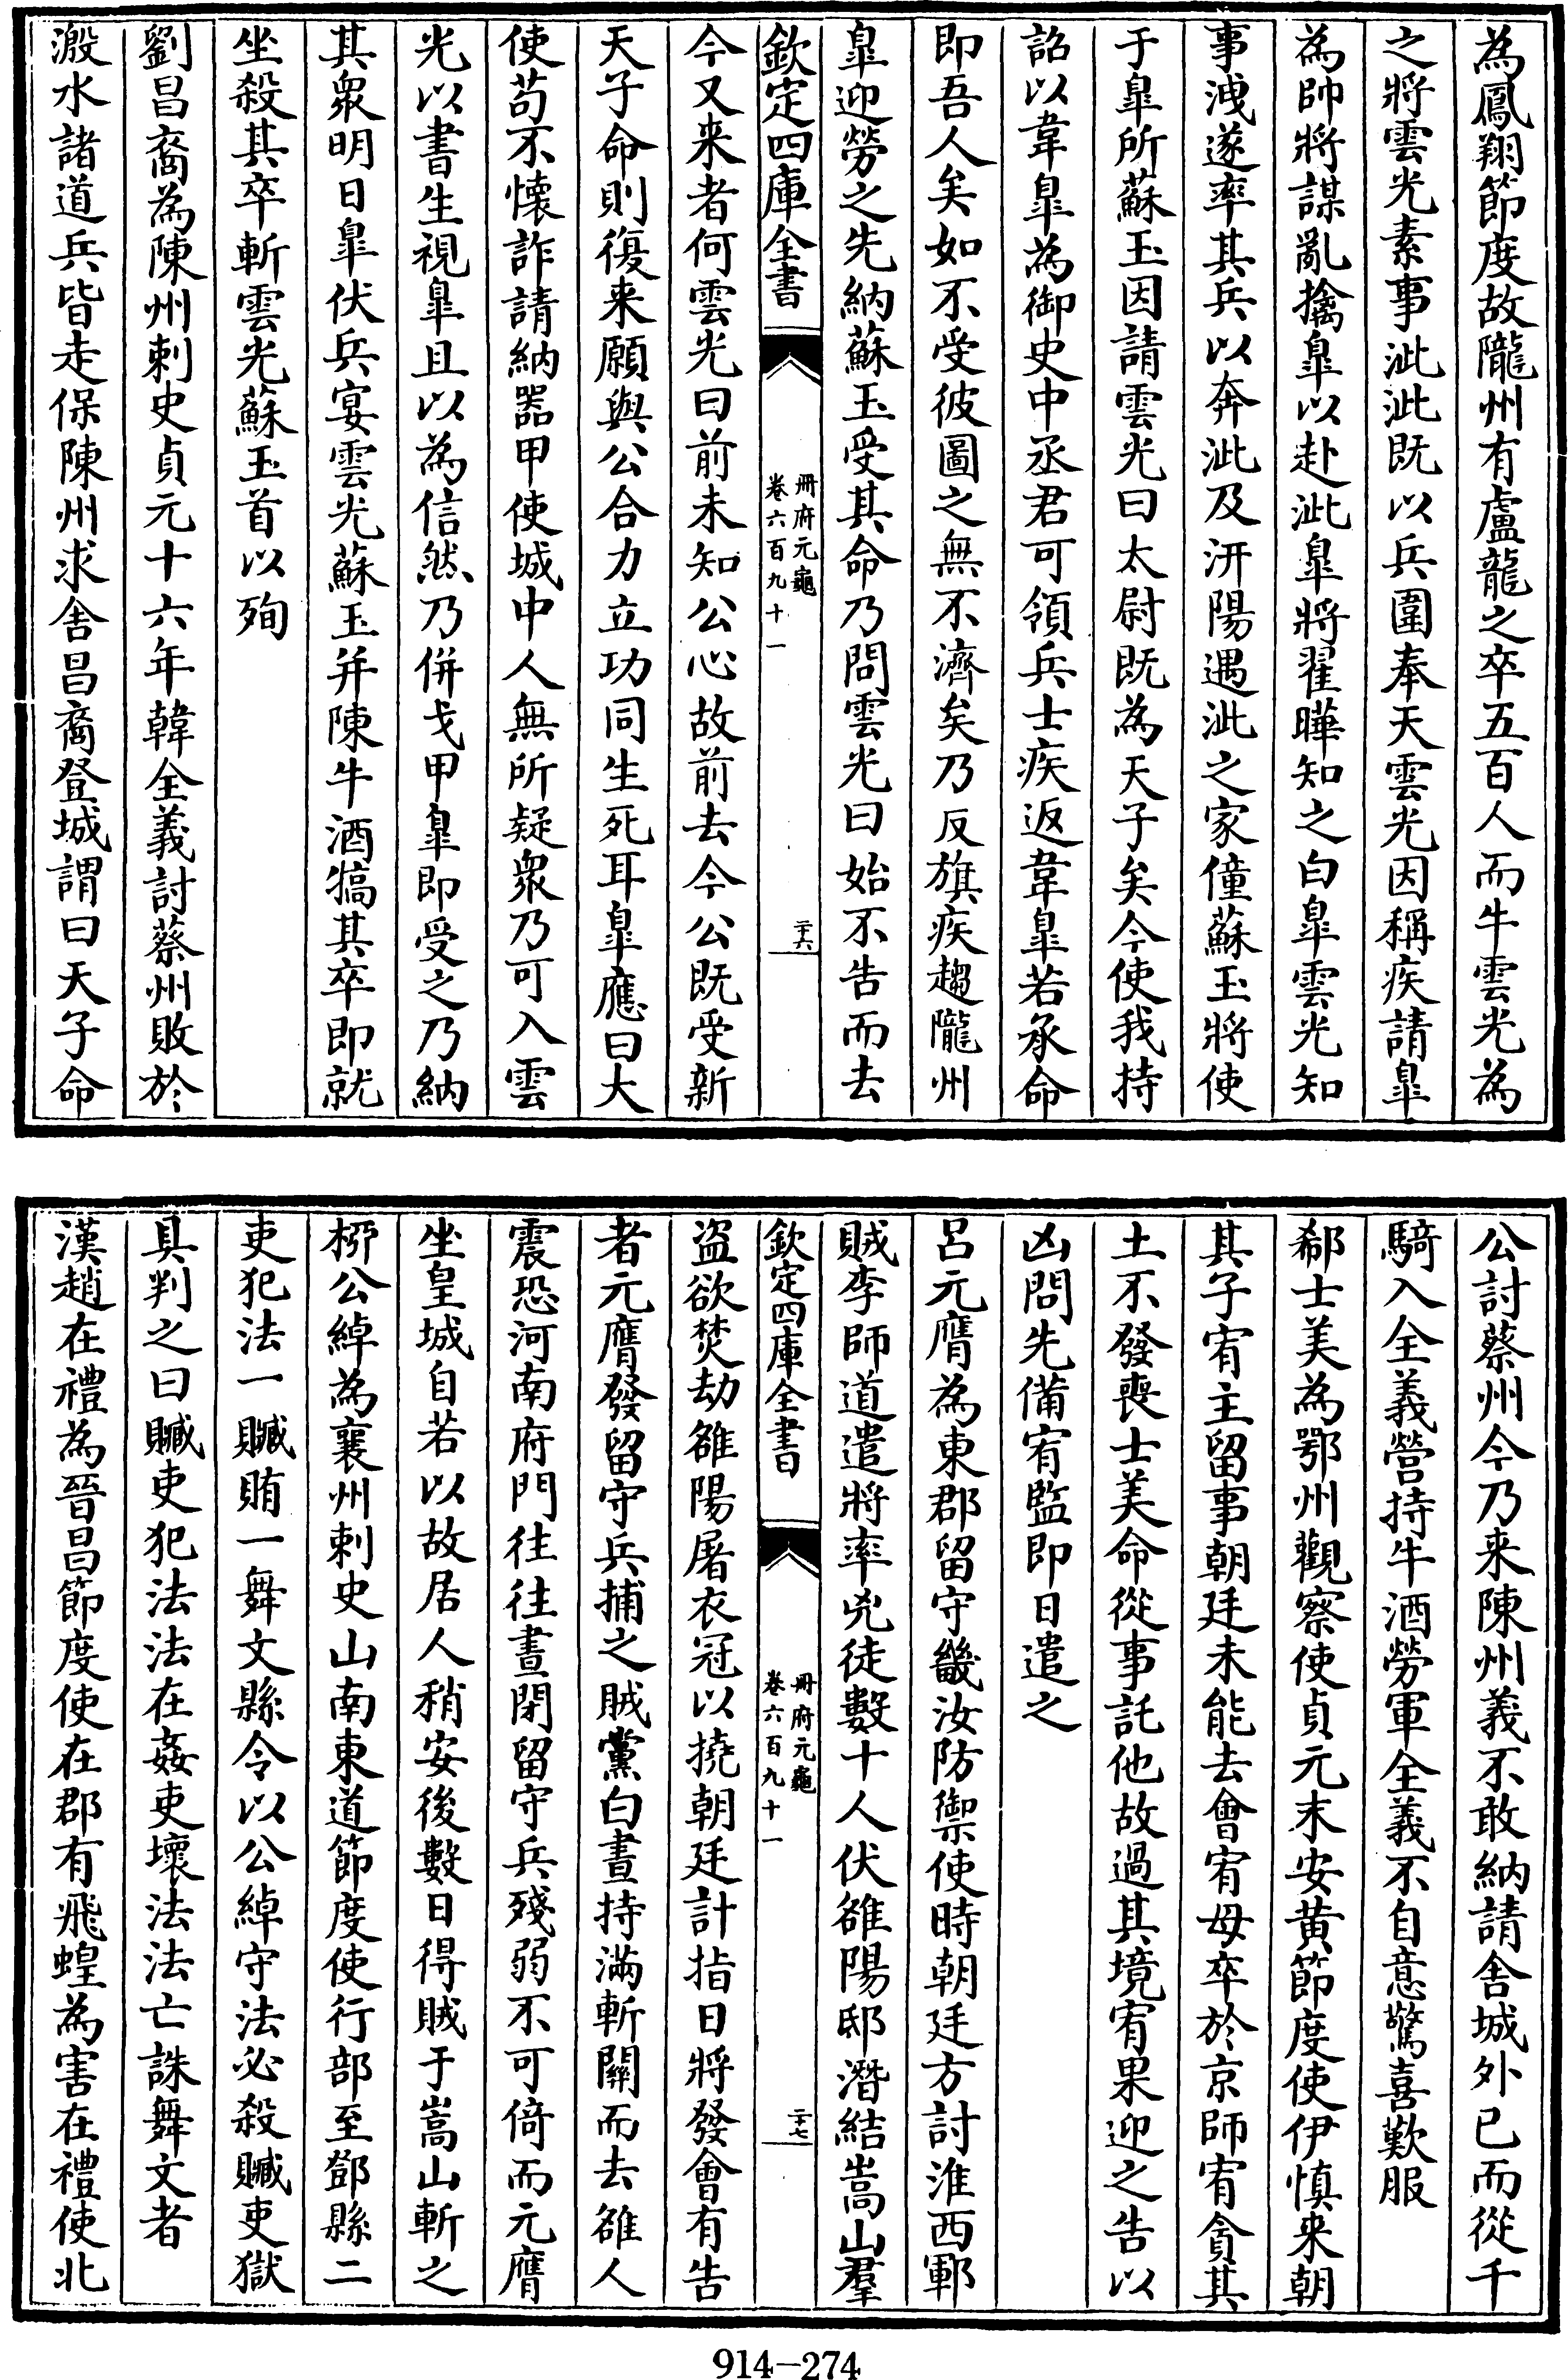 為鳳翔節度故隴州有盧龍之卒五百人而牛雲光為
之將雲光素事泚泚既以兵圍奉天雲光因稱疾請臯
為帥將謀亂擒臯以赴泚臯將翟曄知之白臯雲光知
事洩遂率其兵以奔泚及汧陽遇泚之家僮蘇玉將使
于臯所蘇玉因請雲光曰太尉既為天子矣今使我持
詔以韋臯為御史中丞君可領兵士疾返韋臯若承命
即吾人矣如不受彼圖之無不濟矣乃反旗疾趨隴州
臯迎勞之先納蘇玉受其命乃問雲光曰始不告而去
欽定四庫全書
冊府元龜
卷六百九十一
二十六
今又来者何雲光曰前未知公心故前去今公既受新
天子命則復来願與公合力立功同生死耳臯應曰大
使苟不懐詐請納器甲使城中人無所疑衆乃可入雲
光以書生視臯且以為信然乃併戈甲臯即受之乃納
其衆明日臯伏兵宴雲光蘇玉并陳牛酒犒其卒即就
坐殺其卒斬雲光蘇玉首以殉
劉昌裔為陳州刺史貞元十六年韓全義討蔡州敗於
溵水諸道兵皆走保陳州求舍昌裔登城謂曰天子命
公討蔡州今乃来陳州義不敢納請舍城外已而從千
騎入全義營持牛酒勞軍全義不自意驚喜歎服
郗士美為鄂州觀察使貞元末安黄節度使伊慎来朝
其子宥主留事朝廷未能去會宥母卒於京師宥貪其
土不發喪士美命從事託他故過其境宥果迎之告以
凶問先備宥監即日遣之
呂元膺為東郡留守畿汝防禦使時朝廷方討淮西鄆
賊李師道遣將率兇徒數十人伏雒陽邸潛結嵩山羣
欽定四庫全書
冊府元龜
卷六百九十一
二十七
盜欲焚劫雒陽屠衣冠以撓朝廷計指日將發會有告
者元膺發留守兵捕之賊黨白晝持滿斬關而去雒人
震恐河南府門往往晝閉留守兵殘弱不可倚而元膺
坐皇城自若以故居人稍安後數日得賊于嵩山斬之
栁公綽為襄州刺史山南東道節度使行部至鄧縣二
吏犯法一贓賄一舞文縣令以公綽守法必殺贓吏獄
具判之曰贓吏犯法法在姦吏壞法法亡誅舞文者
漢趙在禮為晉昌節度使在郡有飛蝗為害在禮使北
914-274